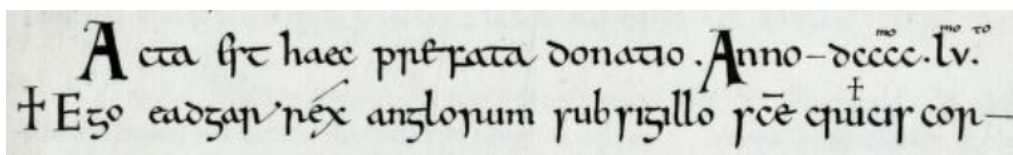 Acta est haec prefata donatio. Anno – dccccᵐᵒ. lᵐᵒv.ᵗᵒ
✝ Ego eadgar rex anglorum sub sigillo sc̄e crucis cor–